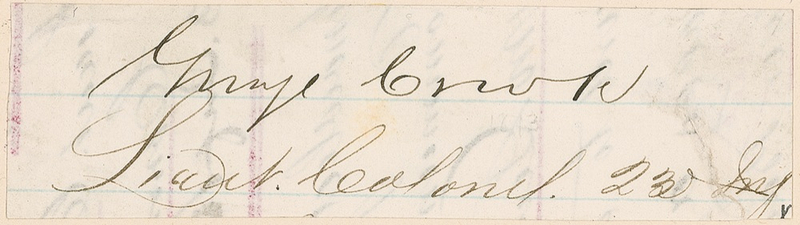 George Crook
Lieut. Colonel. 23d Inf